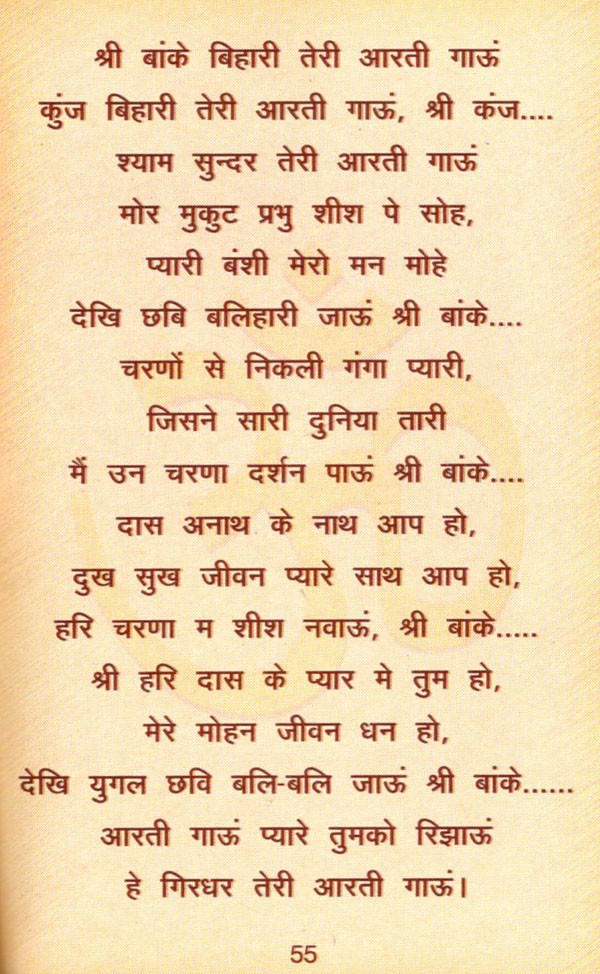 श्री बांके बिहारी तेरी आरती गाऊं
कुंज बिहारी तेरी आरती गाऊं, श्री कंज....
श्याम सुन्दर तेरी आरती गाऊं
मोर मुकुट प्रभु शीश पे सोह,
प्यारी बंशी मेरो मन मोहे
देखि छबि बलिहारी जाऊं श्री बांके....
चरणों से निकली गंगा प्यारी,
जिसने सारी दुनिया तारी
मैं उन चरणा दर्शन पाऊं श्री बांके....
दास अनाथ के नाथ आप हो,
दुख सुख जीवन प्यारे साथ आप हो,
हरि चरणा म शीश नवाऊं, श्री बांके.....
श्री हरि दास के प्यार मे तुम हो,
मेरे मोहन जीवन धन हो,
देखि युगल छवि बलि-बलि जाऊं श्री बांके......
आरती गाऊं प्यारे तुमको रिझाऊं
हे गिरधर तेरी आरती गाऊं।
55